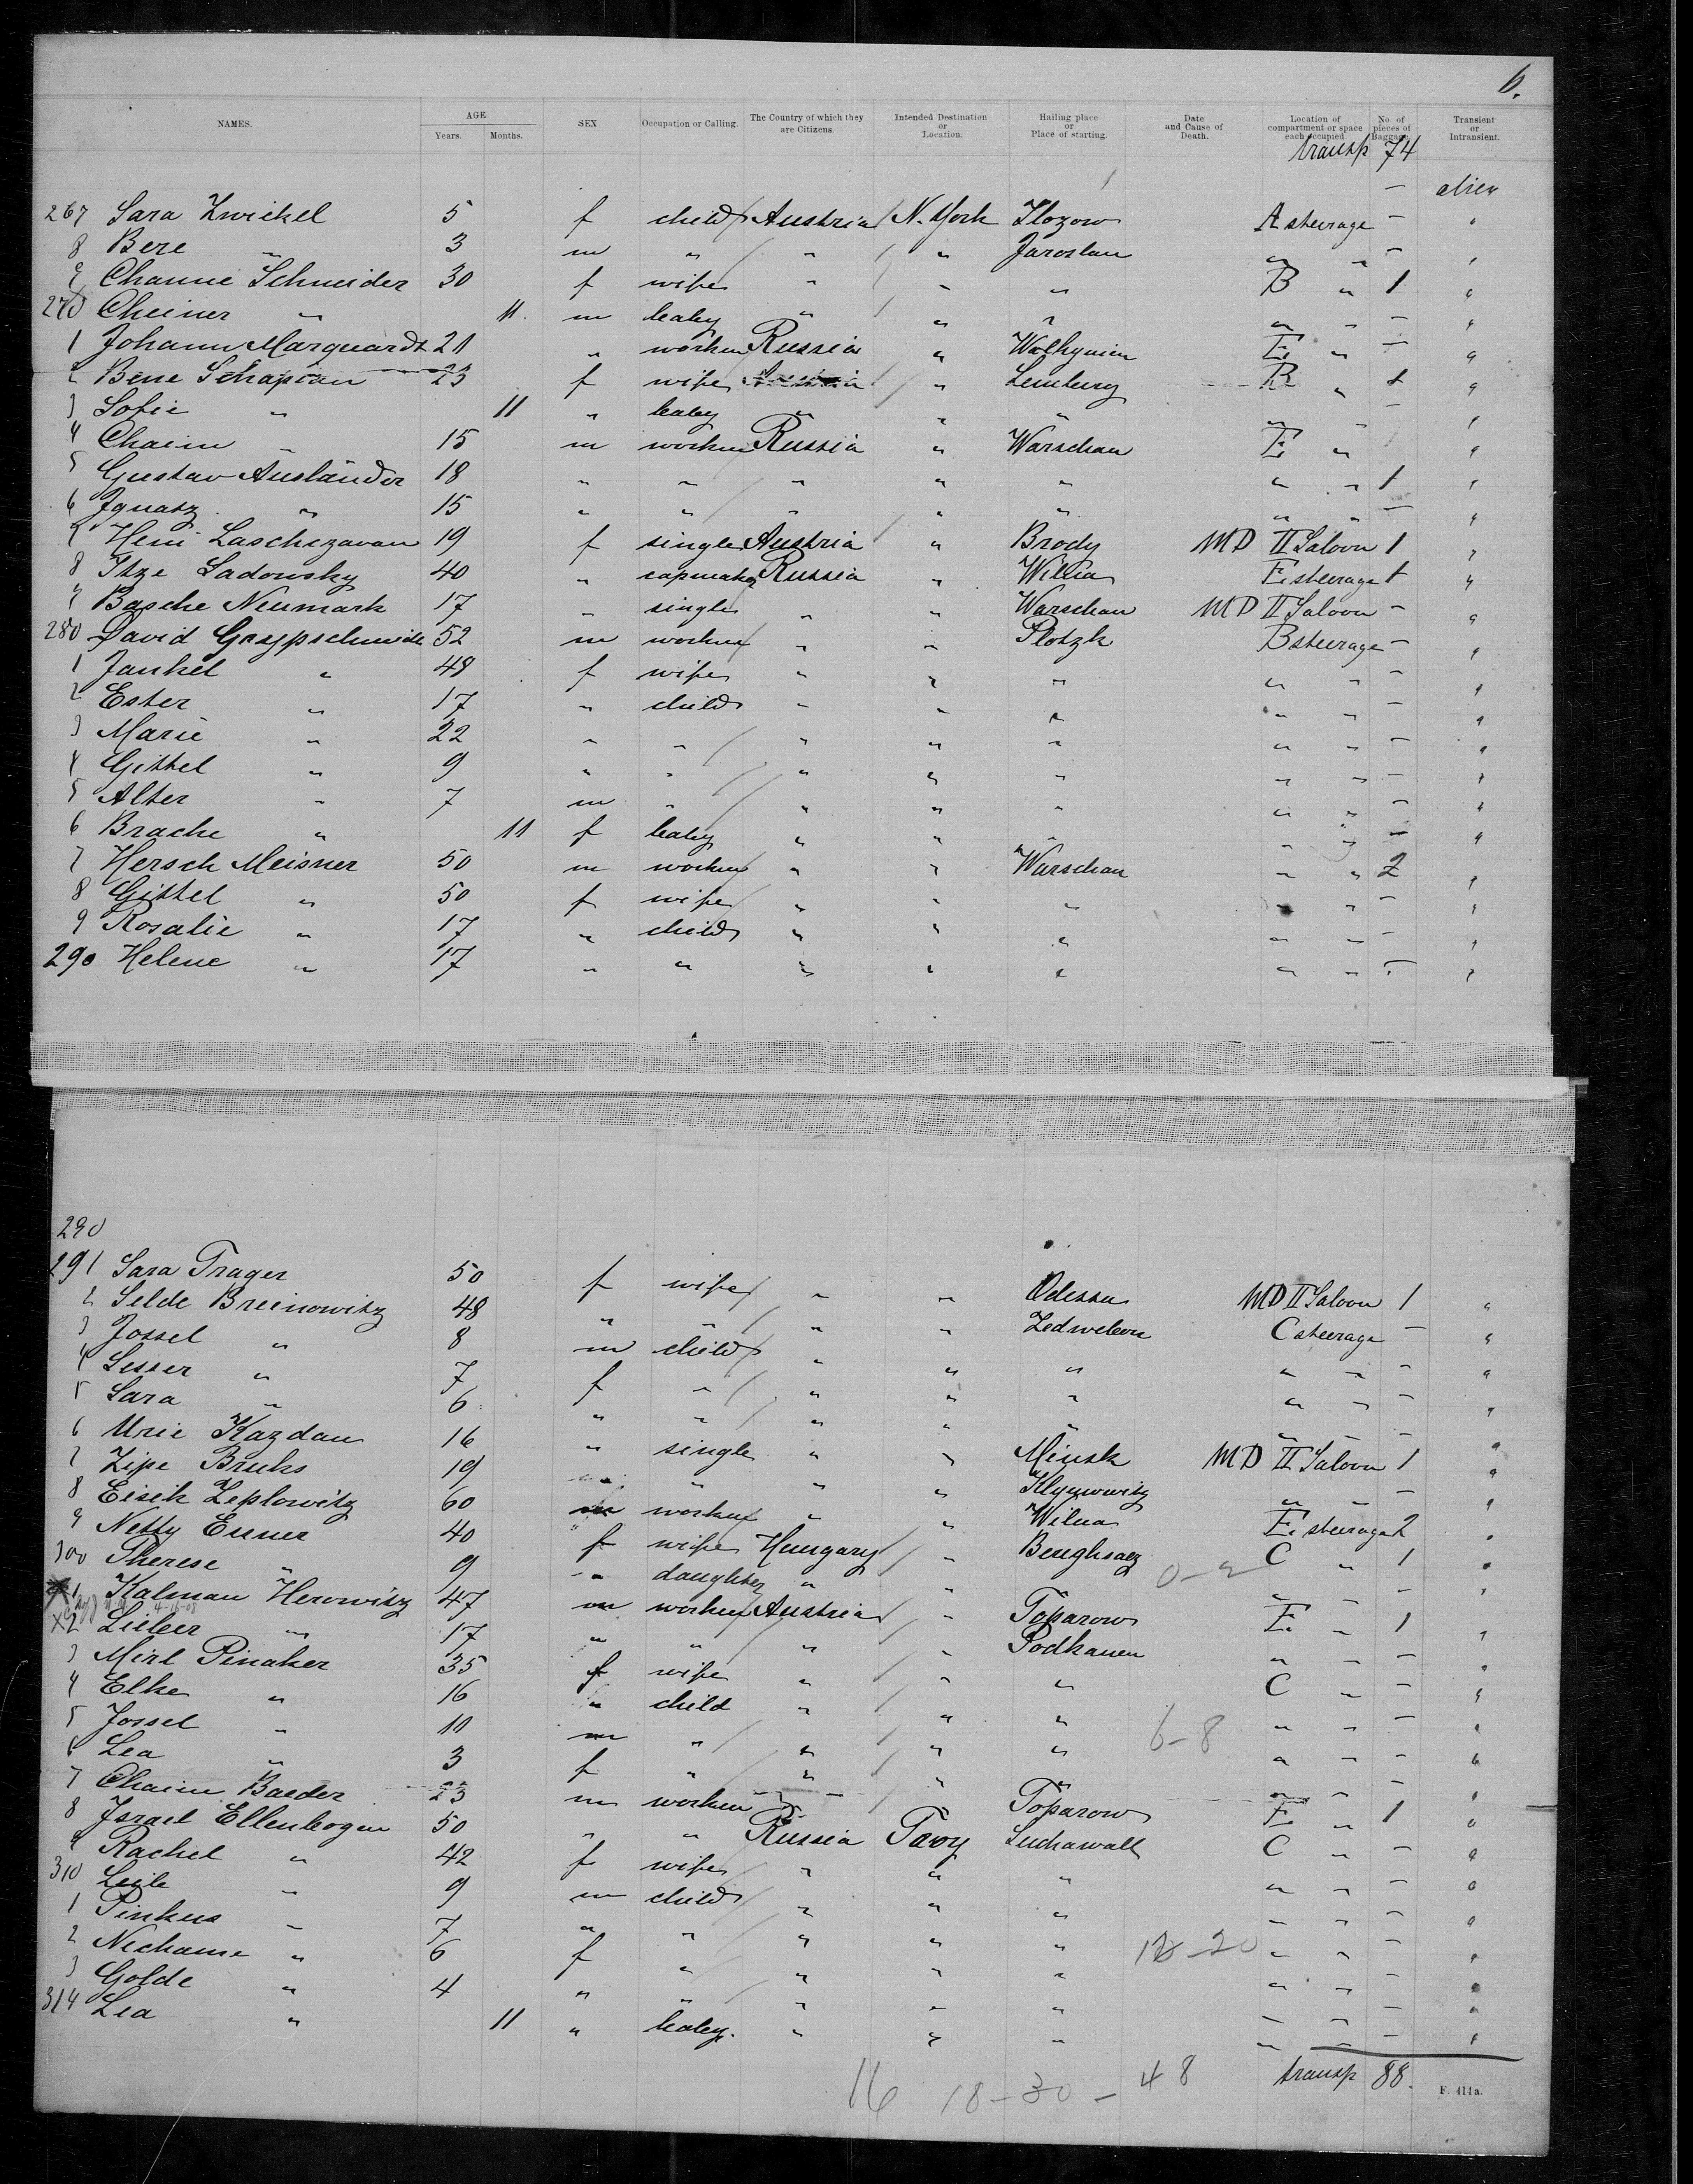 6.
NAMES. AGE Years. Months. SEX Occupation or Calling. The Country of which they are Citizens. Intended Destination or Location. Hailing place or Place of starting. Date and Cause of Death. Location of compartment or space each occupied. No. of pieces of Baggage. Transient or Intransient.
transp 74
267 Sara Zwickel 5 f child Austria N. York Zlozow A steerage - alien
8 Bere " 3 m " " " Jaroslau " " - "
9 Channe Schneider 30 f wife " " " B " 1 "
270 Cheiner " 11 m baby " " " " " - "
1 Johann Marquardt 21 " workm Russia " Wolhynien E " - "
2 Bene Schapirau 23 f wife " Lemberg B " 1 "
3 Sofie " 11 " baby " " " " " - "
4 Chaim " 15 m workm Russia " Warschau E " "
5 Gustav Ausländer 18 " " " " " " " 1 "
6 Ignatz " 15 " " " " " " " - "
7 Heni Laschezavan 19 f single Austria " Brody MD II Saloon 1 "
8 Itze Sadowsky 40 " capmaker Russia " Wilna E steerage 1 "
9 Basche Neumark 17 " single " " Warschau MD II Saloon - "
280 David 52 m workm " " Plotzk B steerage - "
1 Jankel " 48 f wife " " " " " - "
2 Ester " 17 " child " " " " " - "
3 Marie " 22 " " " " " " " - "
4 Gittel " 9 " " " " " " " - "
5 Alter " 7 m " " " " " " - "
6 Brache " 11 f baby " " " " " - "
7 Hersch Meisner 50 m workm " " Warschau " " 2 "
8 Gittel " 50 f wife " " " " " - "
9 Rosalie " 17 " child " " " " " - "
290 Helene " 17 " " " " " " " - "
290
291 Sara Trager 50 f wife " " Odessa MD II Saloon 1 "
2 Selde Breinowitz 48 " " " " C steerage - "
3 Jossel " 8 m child " " " " " - "
4 Lesser " 7 f " " " " " " - "
5 Sara " 6 " " " " " " " - "
6 Urie Kazdan 16 " single " " Minsk MD II Saloon 1 "
7 Zipe Bruks 19 " " " " " " - "
8 Eisik Zeplowitz 60 m workm " " Wilna E steerage 2 "
9 Netty Exner 40 f wife Hungary " C " 1 "
300 Therese " 9 " daughter " " " " " - "
0-2
1 Kalman Herowitz 47 m workm Austria " Toparow E " 1 "
4-16-08
X2 Lieber " 17 " " " " Podkamen " " - "
3 Mirl Pinaker 35 f wife " " " C " - "
4 Elke " 16 " child " " " " " - "
5 Jossel " 10 m " " " " 6-8 " " - "
6 Lea " 3 f " " " " " " - "
7 Chaim Baeder 23 m workm " Toparow E " 1 "
8 Israel Ellenbogen 50 " " Russia Troy Suchawall C " - "
9 Rachel " 42 f wife " " " " " - "
310 Leile " 9 m child " " " " " - "
1 Pinkus " 7 " " " " " " " - "
2 Nechame " 6 f " " " " 18-20 " " - "
3 Golde " 4 " " " " " " " - "
314 Lea " 11 " baby. " " " " " - "
16 18-30- 48 transp 88.
F. 414a.